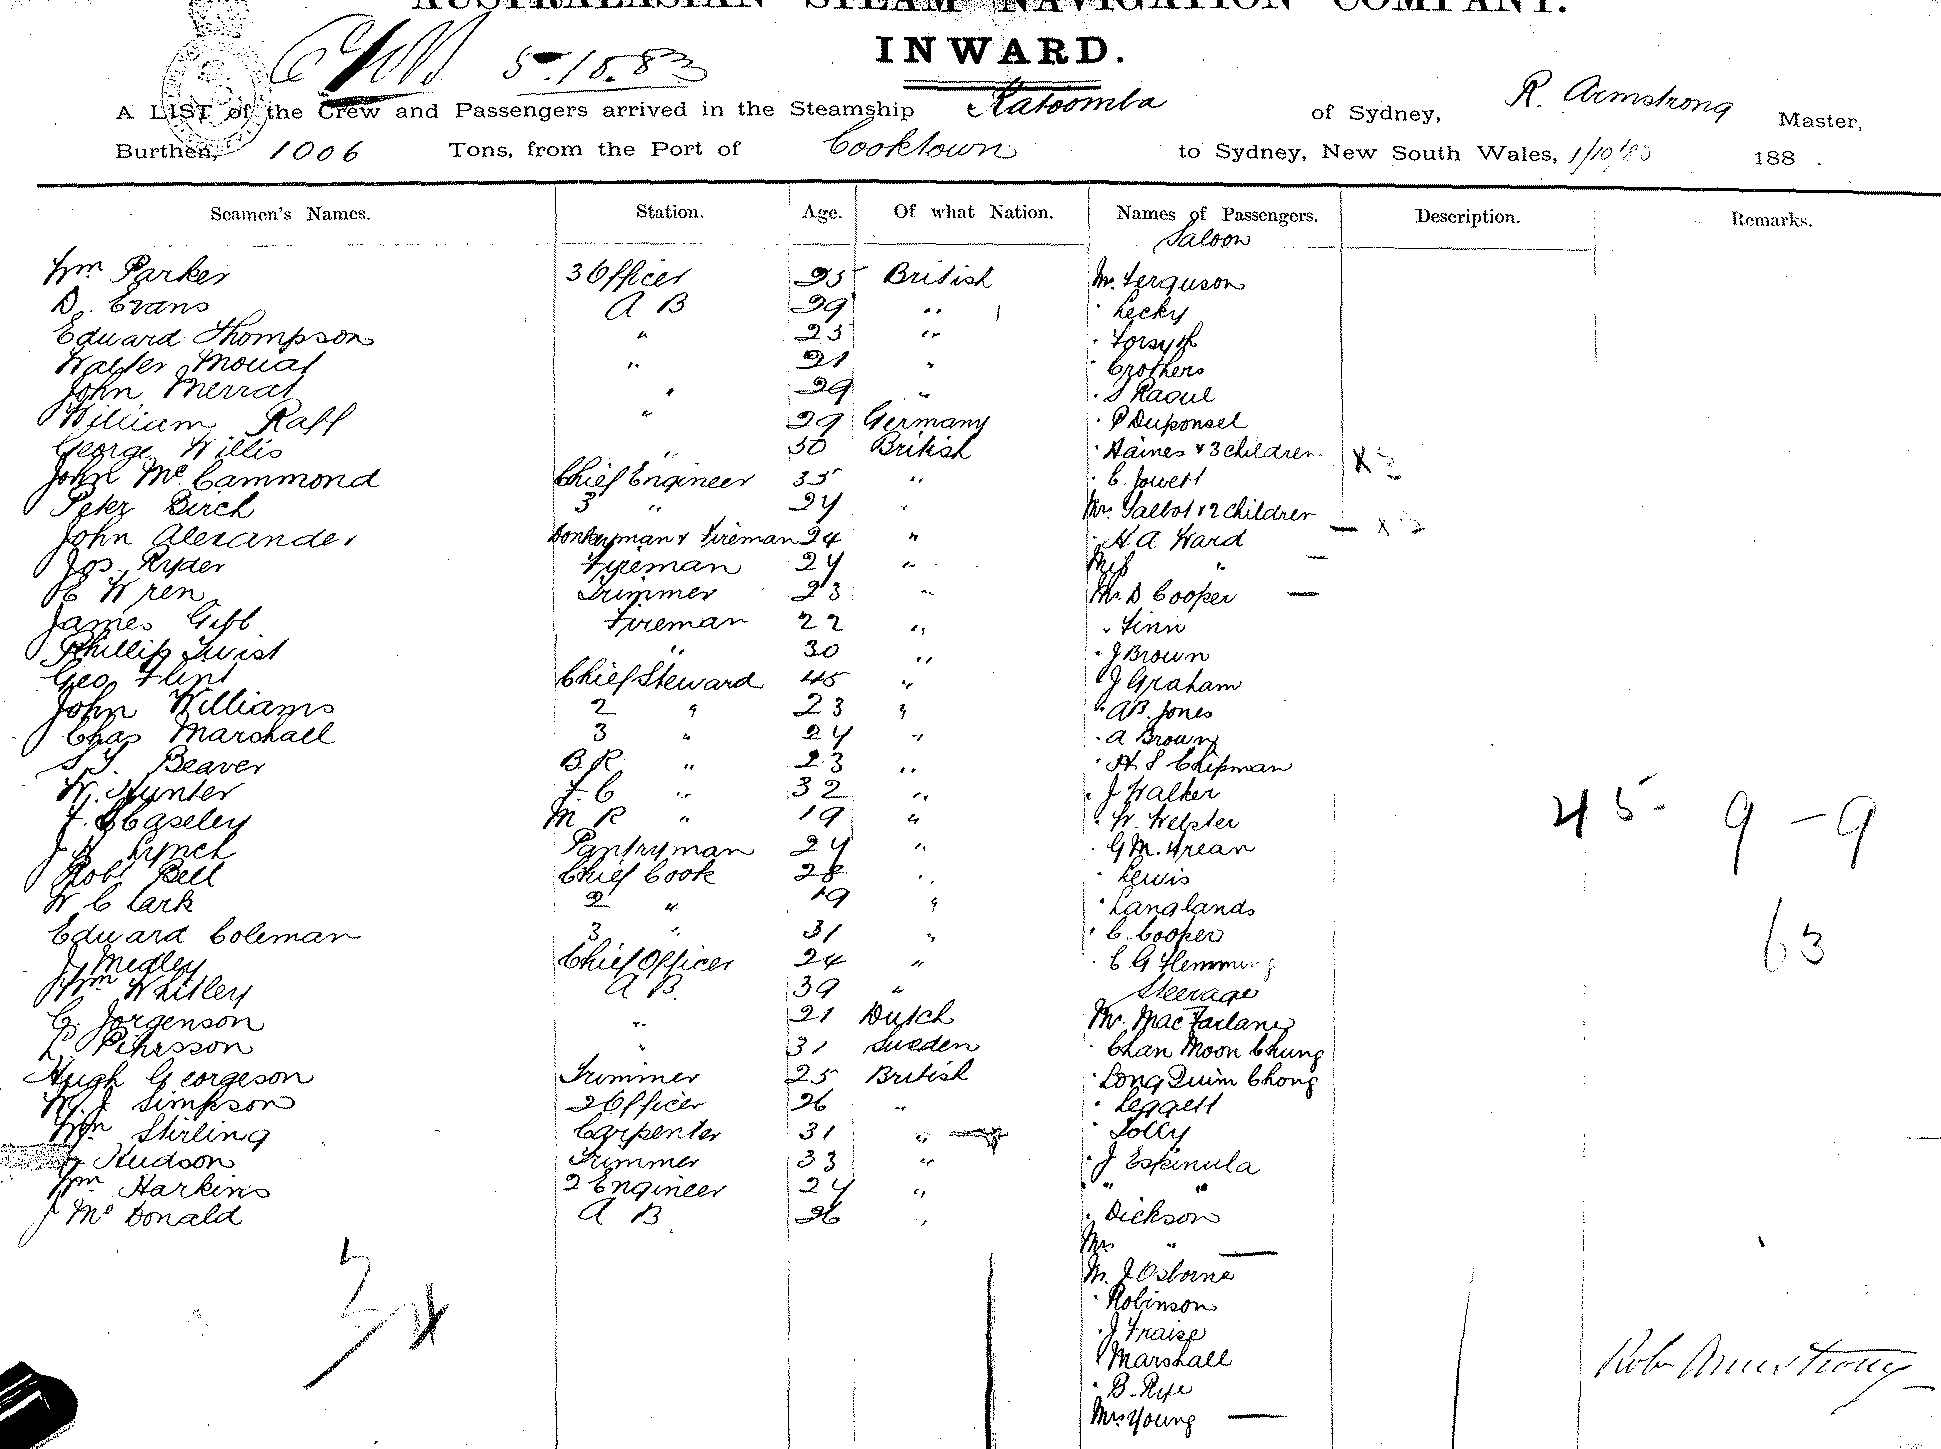 AUSTRALASIAN STEAM NAVIGATION COMPANY.
INWARD.
5.10.83
A LIST of the Crew and Passengers arrived in the Steamship Katoomba of Sydney, R. Armstrong Master,
Burthen, 1006 Tons, from the Port of Cooktown to Sydney, New South Wales, 1/10/83 188 .
Seamen's Names. Station. Age. Of what Nation. Names of Passengers. Description. Remarks.
Saloon
Wm Parker 3 Officer 25 British Mr. Ferguson
D. Evans A B 29 " " Lecky
Edward Thompson " 23 " " Forsyth
Walter Mouat " 21 " " Crothers
John Merrat " 29 " " S Raoul
William Raff " 29 Germany " P Duponsel
George Willis " 30 British " Haines & 3 children x 3
John McCammond Chief Engineer 35 " " C. Jowett
Peter Birch 3 " 24 " Mrs. Talbot & 2 children — x 2
John Alexander Donkeyman & Fireman 24 " " H A Ward
Jos. Ryder Fireman 24 " Miss " —
C Wren Trimmer 23 " Mr. D Cooper —
James Gibb Fireman 22 " " Finn
Phillip Twist " 30 " " J Brown
Geo Flint Chief Steward 45 " " J Graham
John Williams 2 " 23 " " A B. Jones
Chas Marshall 3 " 24 " " A Brown
Beaver B R " 23 " " H. S Chipman
W. Hunter F. C " 32 " " J Walker
Caseley M R " 19 " " W. Webster 45 - 9 - 9
Lynch Pantryman 24 " " G M.
Robt Bell Chief Cook 28 " " Lewis
W Clark 2 " 19 " " Langlands
Edward Coleman 3 " 31 " " C. Cooper 63
J Midley Chief Officer 24 " " C G Flemming
Wm Whitley A B. 39 " Steerage
Jorgenson " 21 Dutch Mr. MacFarlane
" 31 Sweden " Chan Moon Chung
Hugh Georgeson Trimmer 25 British " Long Quim Chong
W. J Simpson 2 Officer 26 " " Leggett
Wm Stirling Carpenter 31 " " Lolly
Hudson Trimmer 33 " " J Espinula
Wm Harkins 2 Engineer 24 " " "
J McDonald A B 26 " " Dickson
Mrs " —
Mr. J Osborne
" Robinson
" J Fraise
" Marshall
" B. Rye
Mrs Young —
34
Robt Armstrong